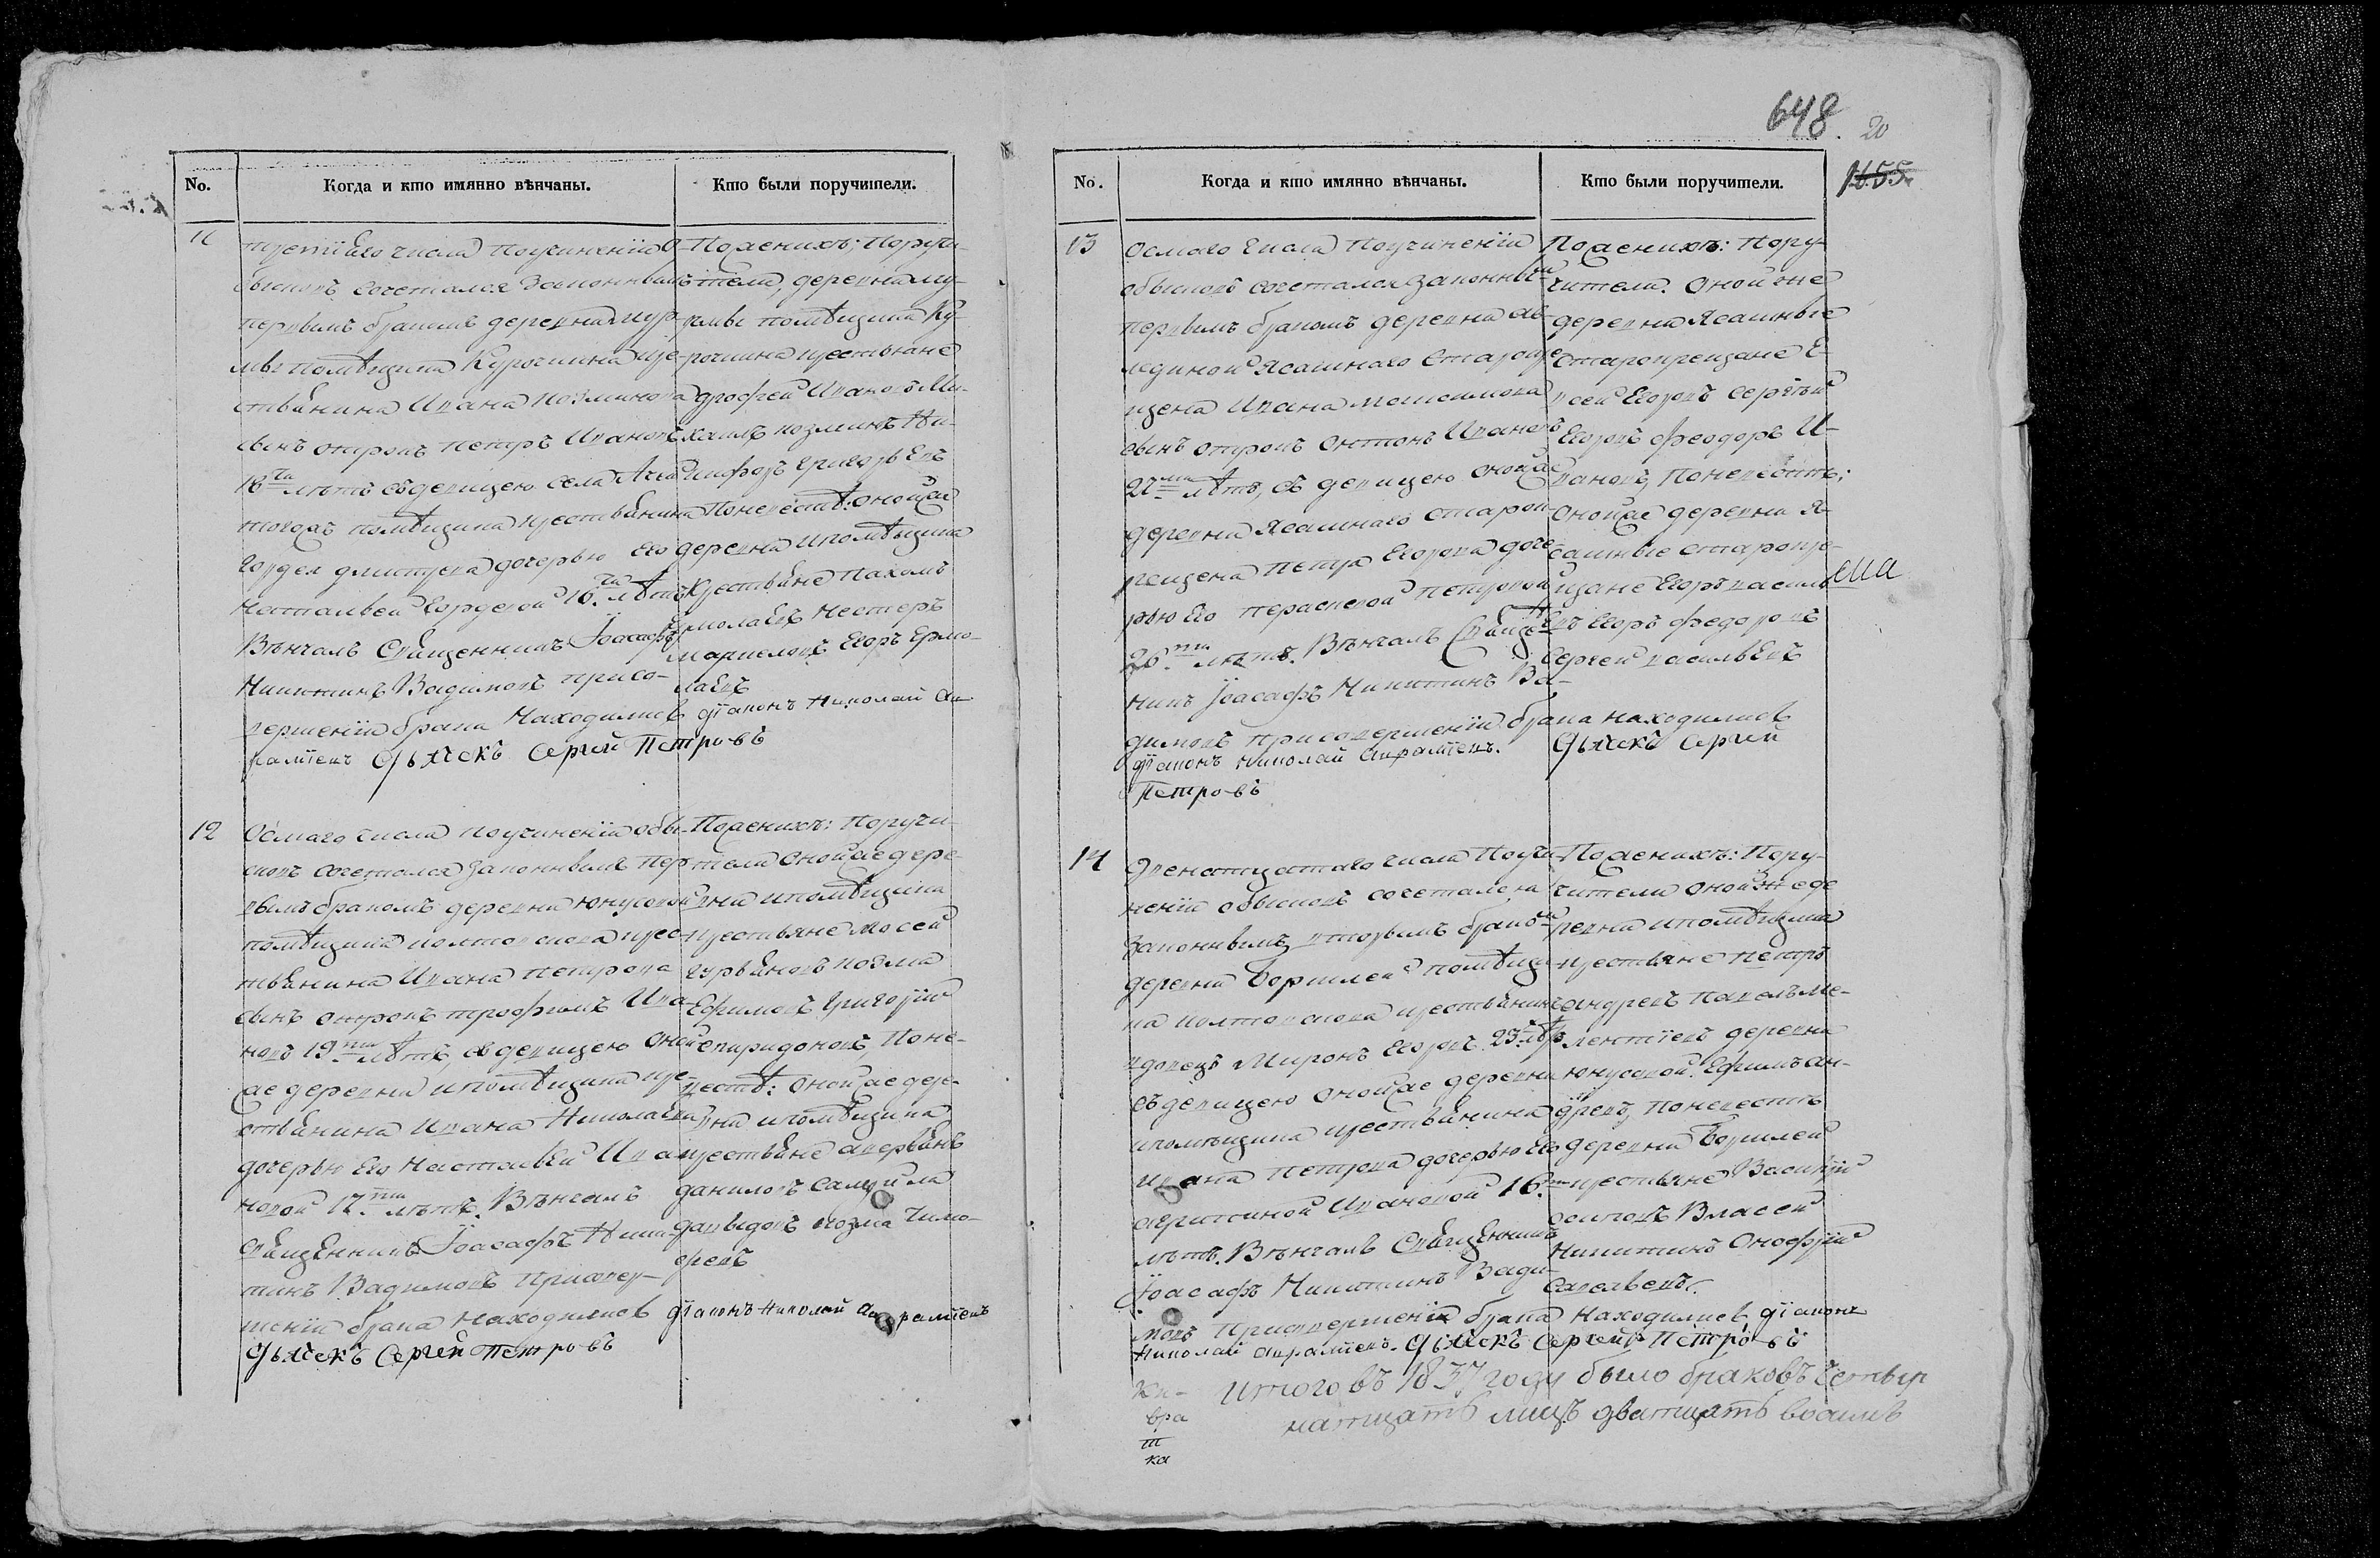 648. 20
1655
No. Когда и кто имянно вѣнчаны. Кто были поручители.
11
третiйго числа поучиненiи О-
бысковъ, сочетался Законнымъ
первымъ бракомъ деревни
помѣщика Курочкина кре-
стьянина Ивана Козминова
сынъ отрокъ Петръ Ивановъ
18ти лѣтъ съ девицею села
тогожъ помѣщика крестьянина
Гордея дочерью его
Натальей Гордеевой 16ти лѣтъ
Вѣнчалъ Священникъ Iоасафъ
Никитинъ Вадимовъ присо-
вершенiи брака Находились дiаконъ Николай Ав
рамiевъ Дьячекъ Сергей Петровъ
Поженихѣ: Поручи-
тели, деревни
помѣщика Ку-
рочкина крестьяне
Дрофей Ивановъ Ми-
хаилъ Козминъ Ни-
кифоръ Григорьевъ
Поневесте: онойже
деревни ипомѣщика
Крестьяне Пахомъ
Ермолаевъ Нестеръ
Маркеловъ Егоръ Ермо-
лаевъ
12
Осмаго числа поучиненiи обы-
сковъ сочетался Законнымъ пер
вымъ бракомъ деревни Юнусовой
помѣщика Полторскова крес-
тьянина Ивана Петрова
сынъ отрокъ Трофимъ Ива-
новъ 19ти лѣтъ, съ девицею оной
же деревни ипомѣщика кре-
стьянина Ивана Николаева
дочерью Его Настасьей Ива
новой 17ти лѣтъ. Вѣнчалъ
Священникъ Iоасафъ Ники-
тинъ Вадимовъ присовер-
шенiи брака Находились дiаконъ Николай Аврамiевъ
Дьячекъ Сергей Петровъ
Поженихѣ: Поручи-
тели онойже дере-
вни ипомѣщика
крестьяне Мосей
Гурьяновъ Козма
Ефимовъ Григорiй
Спиридоновъ, Поне-
весте: онойже дере-
вни ипомѣщика
крестьяне Аверьянъ
Даниловъ Самуйла
Давыдовъ Козма Тимо-
феевъ
No. Когда и кто имянно вѣнчаны. Кто были поручители.
13
Осмаго числа Поучиненiи
обысковъ сочетался Законны
первымъ бракомъ деревни
Ясашнаго Старокре
щена Ивана Максимова
сынъ отрокъ Онтонъ Ивановъ
22ти лѣтъ, съ девицею онойже
деревни Ясашнаго Старок-
рещена Петра Егорова доче-
рью Его Пераскевой Петровой
26ти лѣтъ. Вѣнчалъ Священ
никъ Iоасафъ Никитинъ Ва-
димовъ присовершенiи брака находились
дiаконъ Николай Аврамiевъ. Дьячекъ Сергей
Петровъ
Поженихѣ: Пору-
чители. Оной же
деревни Ясашные
Старокрещане Е-
всей Егоровъ Сергѣй
Егоровъ Феодоръ И-
вановъ, Поневесте:
онойже деревни Я-
сашные старокре-
щане Егоръ Василь
евъ Егоръ Федоровъ
Сергей Васильевъ
14
Двенатцатаго числа Поучи-
ненiи обысковъ сочетался
Законнымъ вторымъ брако
деревни помѣщи-
ка Полторскова крестьянинъ
вдовецъ Миронъ Егоровъ 23 лѣтъ
съ девицею онойже деревни
ипомѣщика крестьянина
Ивана Петрова дочерью его
Ивановой 16ти
лѣтъ. Вѣнчалъ Священникъ
Iоасафъ Никитинъ Вади-
мовъ Присовершенiи брака Находились, дiаконъ
Николай Аврамiевъ. Дьячекъ Сергей Петровъ
Поженихѣ: Пору-
чители онойже де
ревни ипомѣщика
крестьяне Петръ
Андреевъ Павелъ Ме-
лентiевъ деревни
Юнусовой Ефимъ Ан-
дреевъ, Поневесте
деревни
крестьяне Василiй
Осиповъ Власей
Никитинъ Онофрiй
Савельевъ.
Итого въ 1837 году было браковъ четыр
натцать лицъ дватцать восимъ